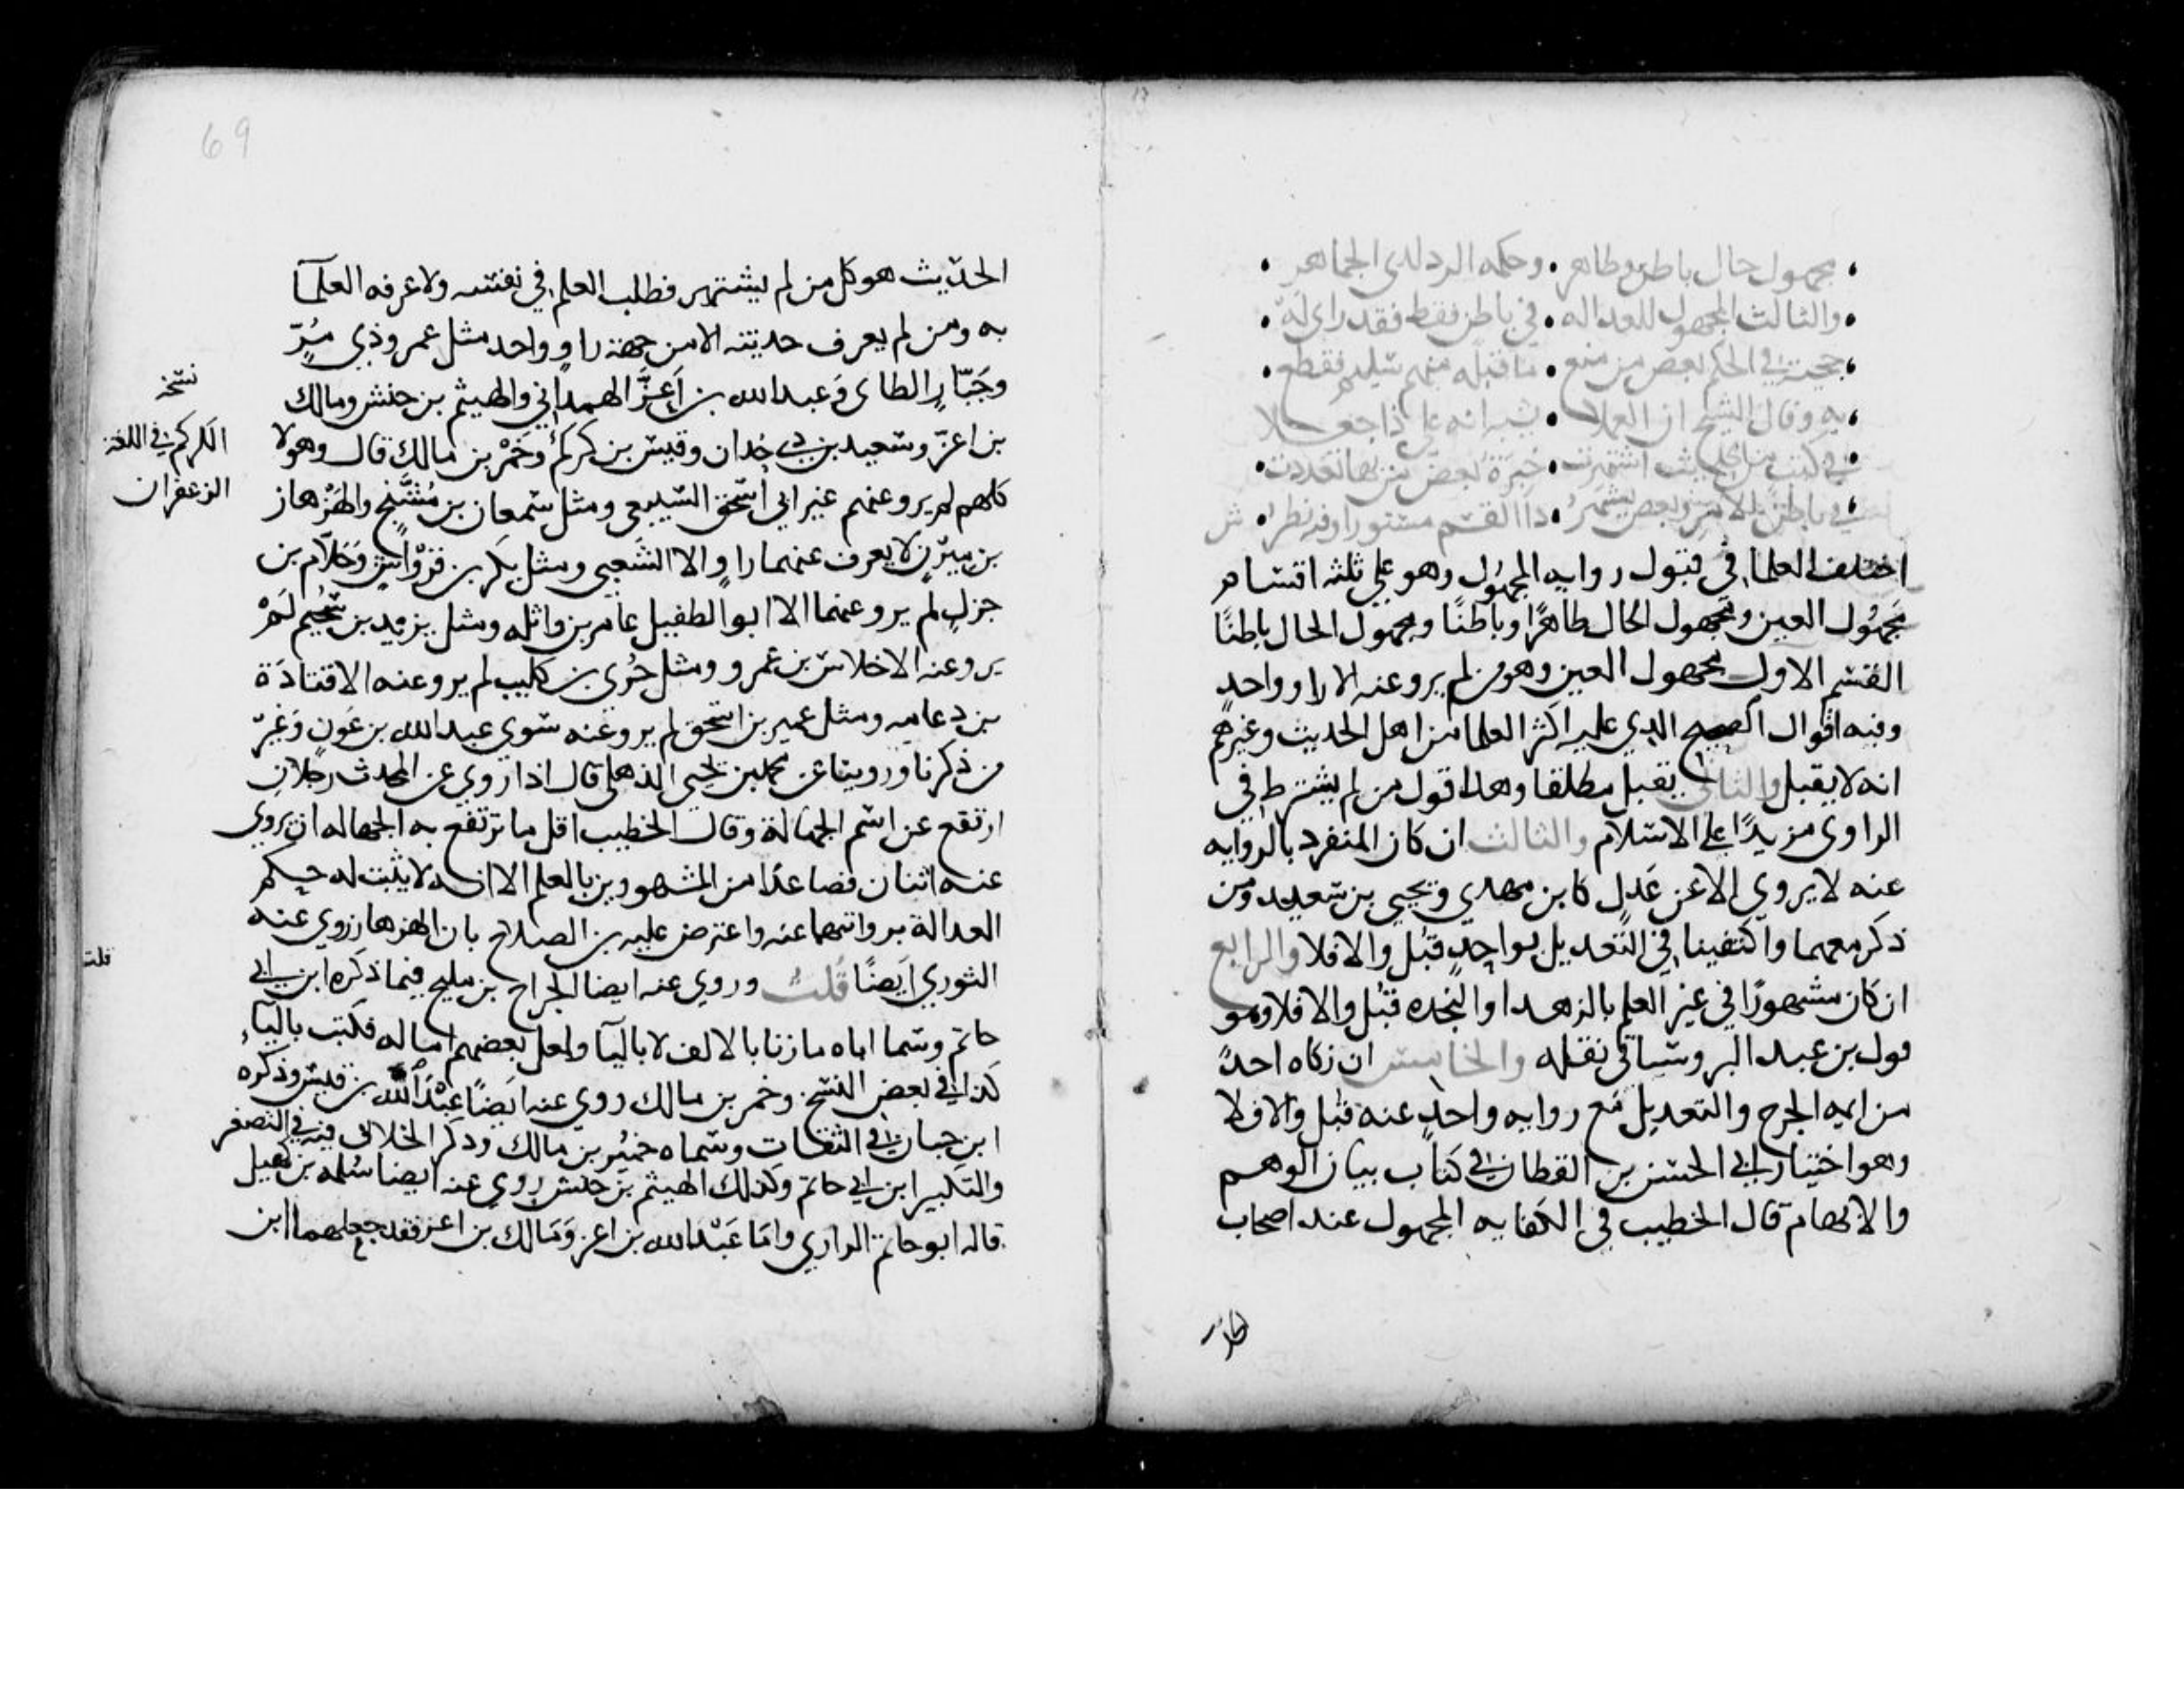 مجهول حال باطن وظاهر • وحكمه الرد لدي الجماهر •
والثالث المجهول للعداله • في باطن فقط فقد راي له •
حجيته في الحكم بعض من منع • ما قبله منهم سليم فقطع •
به وقال الشيخ ان العملا • يشبه انه علي ذا جعلا
في كتب من الحديث اشتهرت • خبرة بعض من بها تعذرت •
في باطن الامر وبعض يشهر • ذا القسم مستورا وفيه نظر • ش
اختلف العلما في قبول روايه المجهول وهو علي ثلثه اقسام
مجهول العين ومجهول الحال ظاهرًا وباطنًا ومجهول الحال باطنًا
القسم الاول مجهول العين وهو من لم يرو عنه الا راو واحد
وفيه اقوال الصحيح الذي عليه اكثر العلما من اهل الحديث وغيرهم
انه لا يقبل والثاني يقبل مطلقا وهذا قول من لم يشترط في
الراوي مزيدًا علي الاسلام والثالث ان كان المنفرد بالروايه
عنه لا يروي الا عن عَدلٍ كابن مهدي ويحيي بن سعيد ومن
ذكر معهما واكتفينا في التعديل بواحدٍ قبل والا فلا والرابع
ان كان مشهورًا في غير العلم بالزهد او النجده قبل والا فلا وهو
قول بن عبد البر وسياتي نقله والخامس ان زكاه احدٌ
من ايمه الجرح والتعديل مع روايه واحدٍ عنه قبل والا فلا
وهو اختيار ابي الحسن بن القطان في كتاب بيان الوهم
والايهام قال الخطيب في الكفايه المجهول عند اصحاب
69
الحديث هو كل من لم يشتهر بطلب العلم في نفسه ولا عرفه العلمآ
به ومن لم يعرف حديثه الا من جهة راوٍ واحد مثل عمرو ذي مُرّ
وجَبّارٍ الطاى وَعبد الله بن اَعزّ الهمداني والهيثم بن حنش ومالك
بن اعزّ وسعيد بن ذي حدان وقيس بن كركم وخَمْر بن مالك قال وهولا
كلهم لم يرو عنهم غير ابي اسحق السبيعي ومثل سمعان بن مُشَنَّج والهَزْهاز
بن ميزن لا يعرف عنهما راوٍ الا الشَعبي ومثل بكر بن قرْواش وحَلاّم بن
جزلٍ لم يرو عنهما الا ابو الطفيل عامر بن واثله ومثل يزيد بن سُحَيم لَمْ
يرو عنه الا خلاس بن عمرو ومثل جُري بن كليب لم يرو عنه الا قتادَة
بن دعامه ومثل عمير بن اسحق لم يرو عنه سوي عبد الله بن عَونٍ وَغير
من ذكرنا وروينا عن محمد بن يحيي الذهلي قال اذا روي عن المحدث رجلان
ارتفع عن اسم الجهالة وقال الخطيب اقل ما ترتفع به الجهاله ان يروي
عنه اثنان فصاعدًا من المشهورين بالعلم الا انه لا يثبت له حكم
العدالة بروايتهما عنه واعترض عليه بن الصلاح بان الهزهاز روي عنه
الثوري ايَضًا قُلتُ وروي عنه ايضا الجراح بن مليح فيما ذكره ابن ابي
حاتم وسما اباه مازنا بالالف لا باليآ ولعل بعضهم اماله فكتب باليآء
كذا في بعض النسخ وخمر بن مالك روي عنه ايَضًا عبْدُ الله بن قيس وذكره
ابن حبان في الثقات وسماه خمير بن مالك وذكر الخلاف فيه في التصغير
والتكبير ابن ابي حاتم وكذلك الهيثم بن حنش روي عنه ايضا سلمه بن كهيل
قاله ابو حاتم الرازي وامَا عَبْد الله بن اعز وَمَالك بن اعز فقد جعلهما ابن
نسخه
الكركم في اللغة
الزعفران
قلت